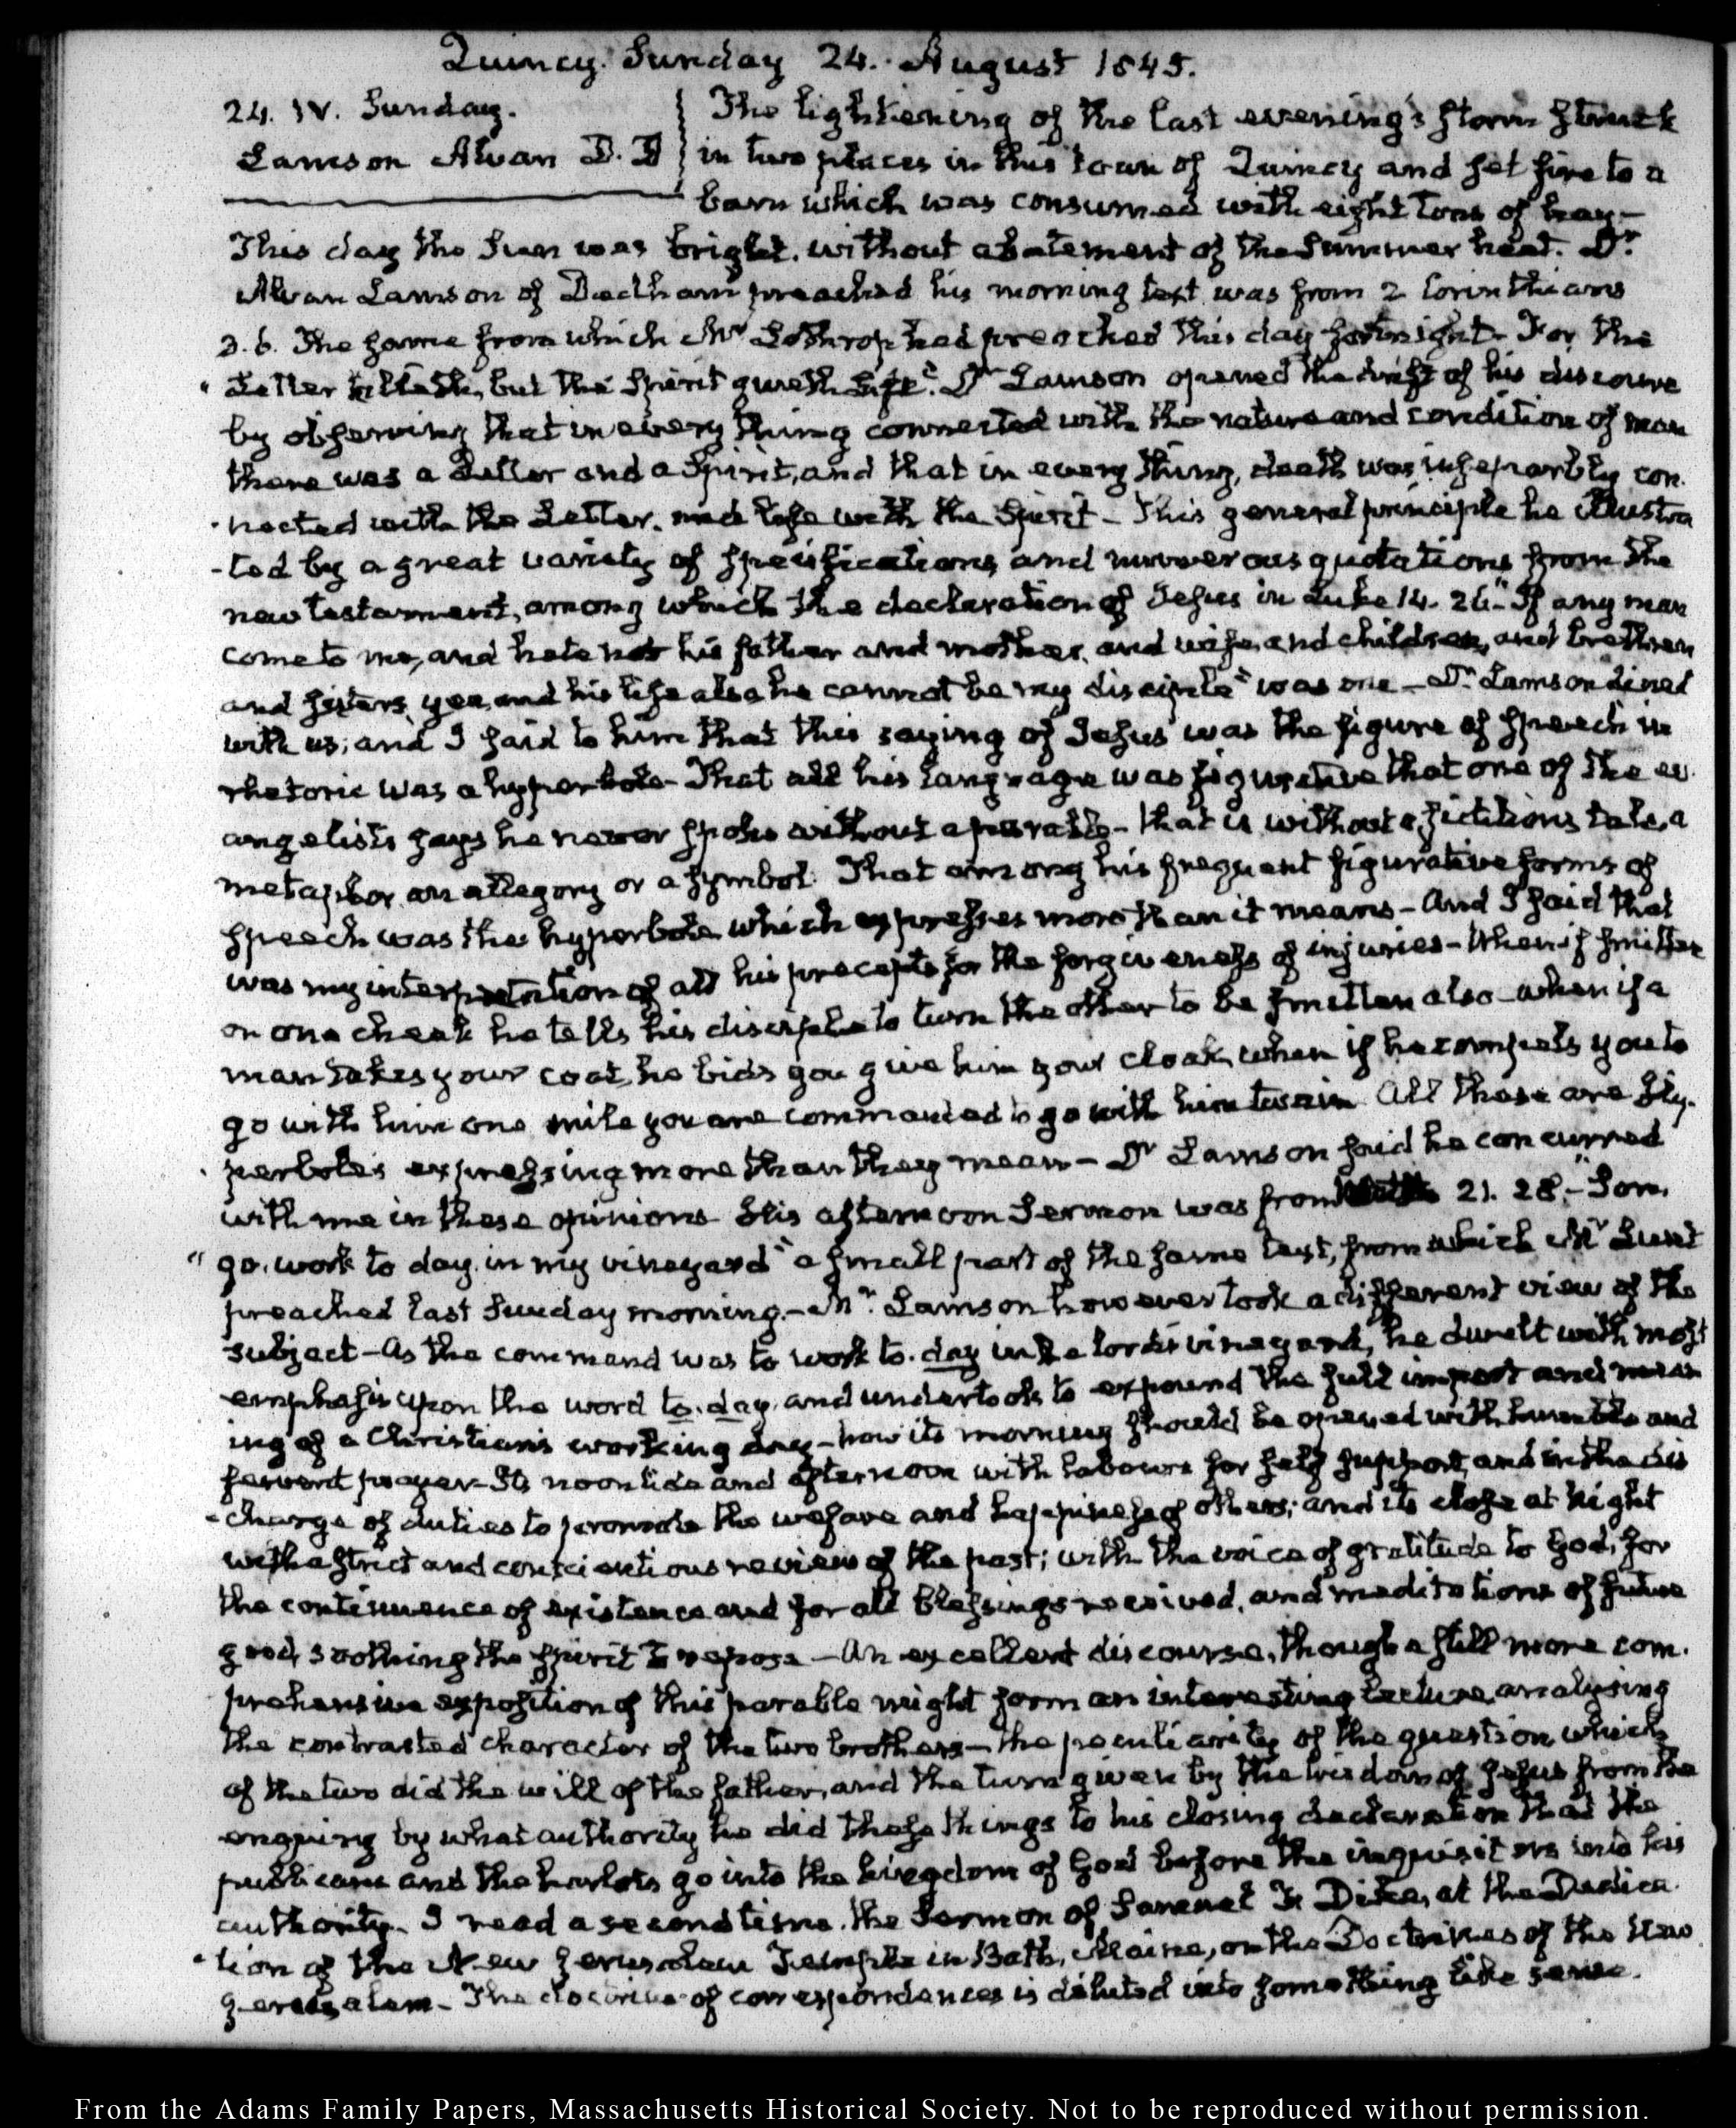 Quincy. Sunday 24. August 1845.
24. IV. Sunday.
Lamson Alvan D.D
The lightening of the last evening's storm struck
in two places in this town of Quincy and set fire to a
barn which was consumed with eight tons of hay—
This day the Sun was bright. without abatement of the Summer heat. Dr.
Alvan Lamson of Dedham preached his morning text was from 2 Corinthians
3.6. The same from which Mr Lothrop had preached this day fortnight. For the
"Letter killeth, but the Spirit giveth life." Dr Lamson opened the drift of his discourse
by observing that in every thing connected with the nature and condition of man
there was a Letter and a Spirit, and that in every thing, death was inseparably con-
nected with the Letter. and life with the Spirit— This general principle he illustra
-ted by a great variety of specifications and numerous quotations from the
new testament, among which the declaration of Jesus in Luke 14. 26. "If any man
come to me, and hate not his father and mother, and wife, and children, and brethren
and sisters, yea, and his life also he cannot be my disciple" was one— Dr. Lamson dined
with us; and I said to him that this saying of Jesus was the figure of speech in
rhetoric was a hyperbole— That all his language was figurative that one of the ev-
angelists says he never spoke without a parable— that is without a fictitious tale, a
metaphor an allegory or a symbol. That among his frequent figurative forms of
speech was the hyperbole which expresses more than it means— And I said that
was my interpretation of all his precepts for the forgiveness of injuries— When if smitten
on one cheek he tells his disciple to turn the other to be smitten also— when if a
man takes your coat, he bids you give him your cloak, when if he compels you to
go with him one mile you are commanded to go with him twain. All these are hy-
perboles expressing more than they mean— Dr Lamson said he concurred
with me in these opinions. His afternoon Sermon was from 21. 28.— "Son,
"go, work to day in my vineyard" a small part of the same text, from which Mr Lunt
preached last Sunday morning.— Mr. Lamson however took a different view of the
subject— As the command was to work to-day in the lord's vineyard, he dwelt with most
emphasis upon the word to-day, and undertook to expound the full import and mean
ing of a Christian's working day— how its morning should be opened with humble and
fervent prayer— Its noontide and afternoon with labours for self support, and in the dis
-charge of duties to promote the welfare and happiness of others; and its close at night
with a strict and conscientious review of the past; with the voice of gratitude to God, for
the continuance of existence and for all blessings received, and meditations of future
good, soothing the spirit to repose— An excellent discourse, though a still more com-
prehensive exposition of this parable might form an interesting lecture, analysing
the contrasted character of the two brothers— the peculiarity of the question which
of the two did the will of the father, and the turn given by the wisdom of Jesus from the
enquiry by what authority he did these things to his closing declaration that the
publicans and the harlots go into the kingdom of God before the inquisitors into his
authority. I read a second time. the Sermon of Samuel F. Dike, at the Dedica
-tion of the New Jerusalem Temple in Bath, Maine, on the Doctrines of the New
Jerusalem— The doctrine of correspondences is diluted into something like sense.
From the Adams Family Papers, Massachusetts Historical Society. Not to be reproduced without permission.